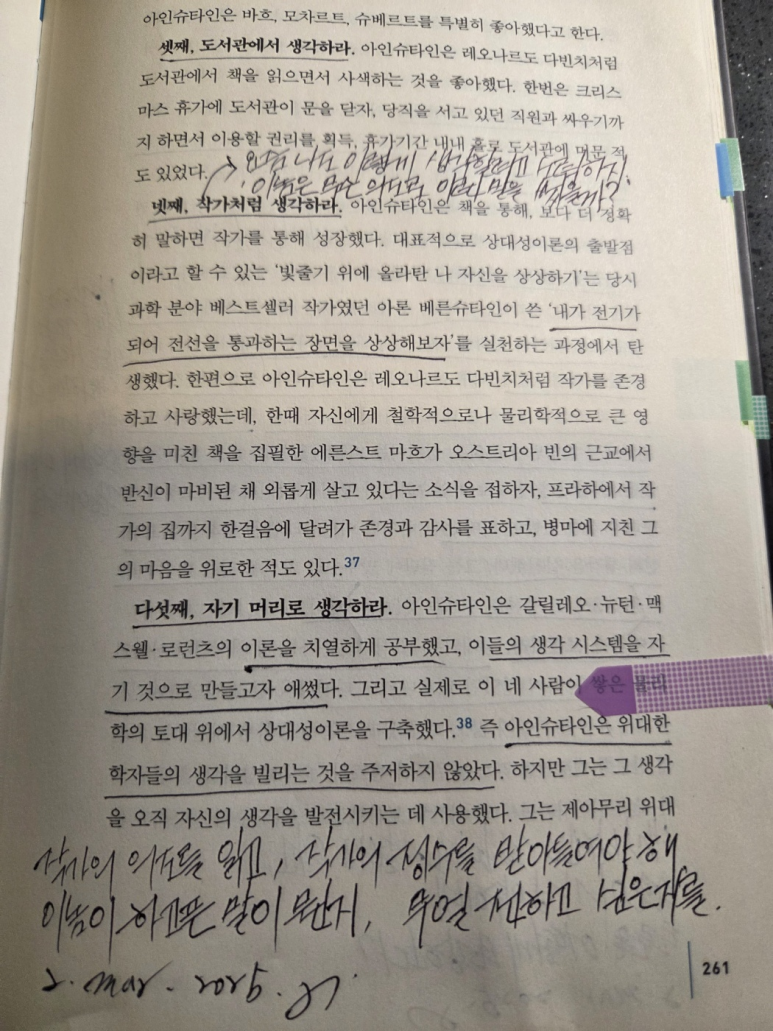 아인슈타인은 바흐, 모차르트, 슈베르트를 특별히 좋아했다고 한다.
셋째, 도서관에서 생각하라. 아인슈타인은 레오나르도 다빈치처럼
도서관에서 책을 읽으면서 사색하는 것을 좋아했다. 한번은 크리스
마스 휴가에 도서관이 문을 닫자, 당직을 서고 있던 직원과 싸우기까
지 하면서 이용할 권리를 획득, 휴가기간 내내 홀로 도서관에 머문 적
도 있었다.
나도 이렇게 생각할려고 노력하지
이놈은 무슨 의도로 이런 말을 했을까?
넷째, 작가처럼 생각하라. 아인슈타인은 책을 통해, 보다 더 정확
히 말하면 작가를 통해 성장했다. 대표적으로 상대성이론의 출발점
이라고 할 수 있는 '빛줄기 위에 올라탄 나 자신을 상상하기'는 당시
과학 분야 베스트셀러 작가였던 아론 베른슈타인이 쓴 '내가 전기가
되어 전선을 통과하는 장면을 상상해보자'를 실천하는 과정에서 탄
생했다. 한편으로 아인슈타인은 레오나르도 다빈치처럼 작가를 존경
하고 사랑했는데, 한때 자신에게 철학적으로나 물리학적으로 큰 영
향을 미친 책을 집필한 에른스트 마흐가 오스트리아 빈의 근교에서
반신이 마비된 채 외롭게 살고 있다는 소식을 접하자, 프라하에서 작
가의 집까지 한걸음에 달려가 존경과 감사를 표하고, 병마에 지친 그
의 마음을 위로한 적도 있다.37
다섯째, 자기 머리로 생각하라. 아인슈타인은 갈릴레오·뉴턴·맥
스웰·로런츠의 이론을 치열하게 공부했고, 이들의 생각 시스템을 자
기 것으로 만들고자 애썼다. 그리고 실제로 이 네 사람이 쌓은 물리
학의 토대 위에서 상대성이론을 구축했다.38 즉 아인슈타인은 위대한
학자들의 생각을 빌리는 것을 주저하지 않았다. 하지만 그는 그 생각
을 오직 자신의 생각을 발전시키는 데 사용했다. 그는 제아무리 위대
작가의 의도를 읽고, 작가의 정수를 받아들여야 해
이놈이 하고픈 말이 뭔지, 무얼 전하고 싶은지를.
2. mar. 2025.
261